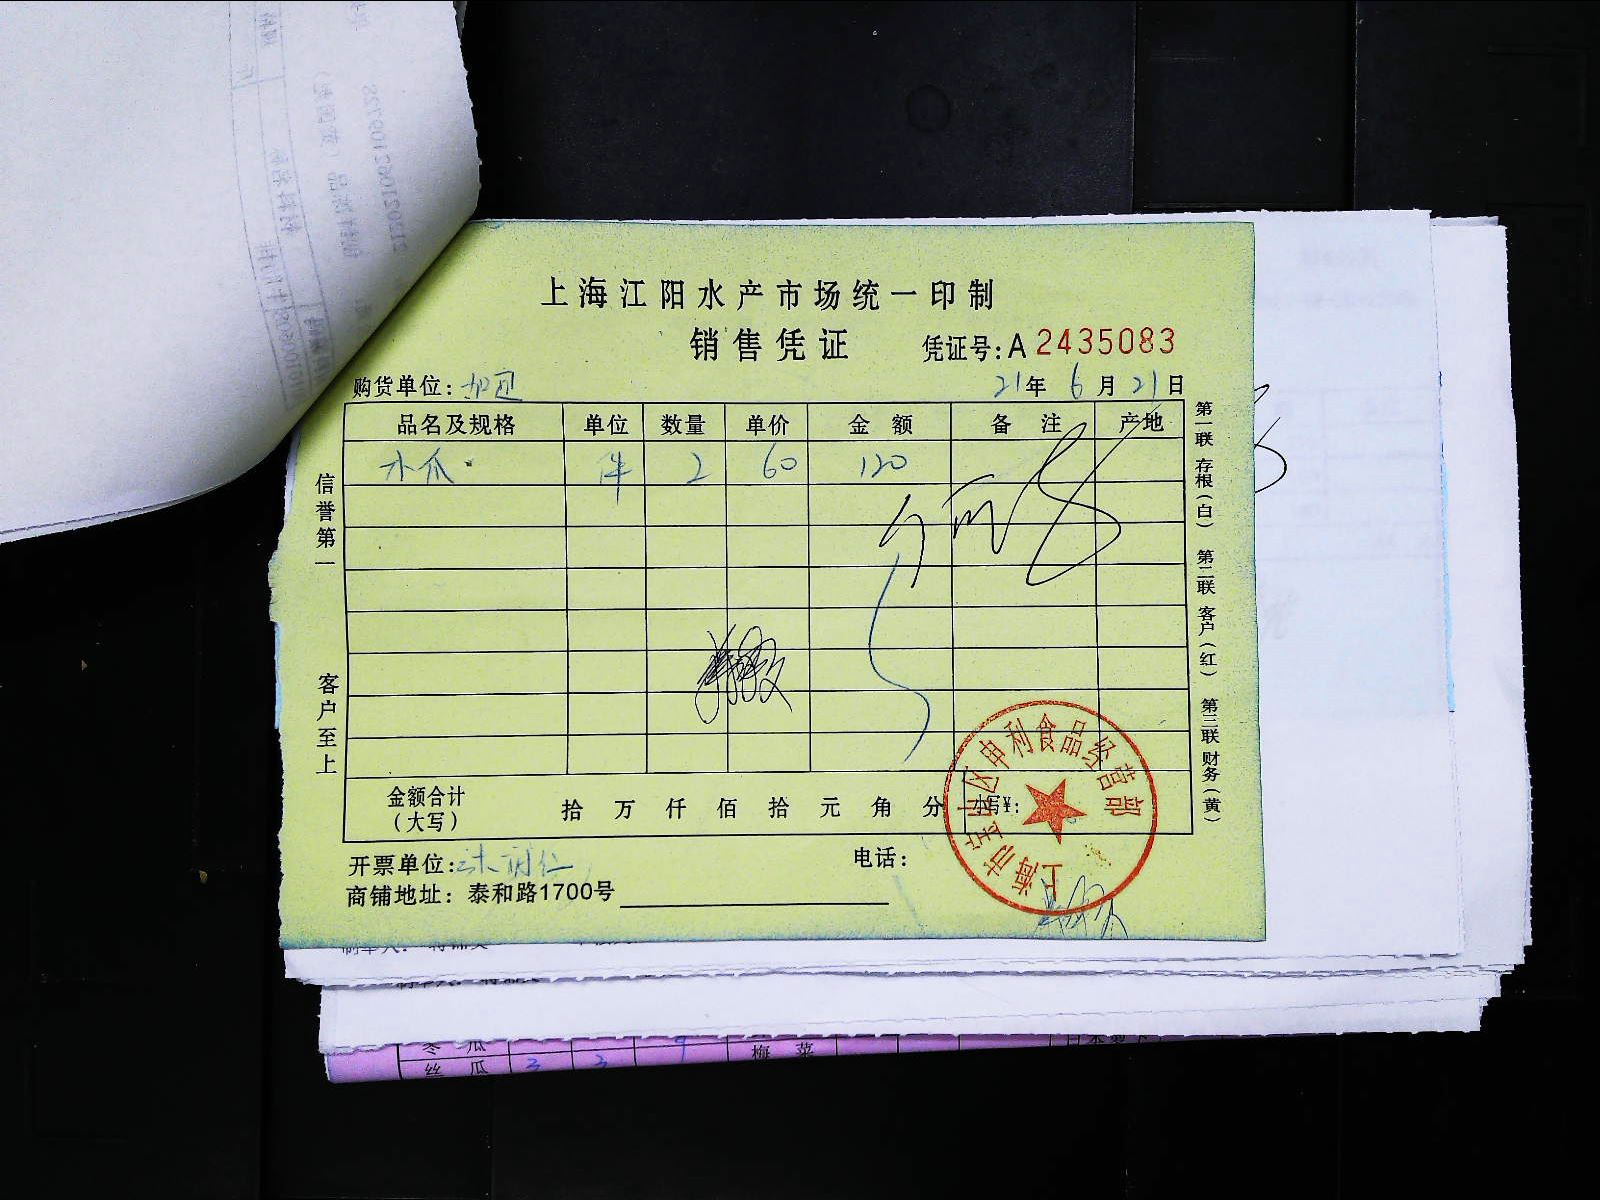 上海江阳水产市场统一印制
销售凭证 凭证号:A 2435083
购货单位: 21年 6月 21日
品名及规格 单位 数量 单价 金额 备注 产地
木瓜 件 2 60 120
信誉第一
客户至上
第一联 存根(白) 第二联 客户(红) 第三联 财务(黄)
金额合计 拾 万 仟 佰 拾 元 角 分 小写¥:
(大写)
上海市宝山区申利食品经营部
开票单位: 电话:
商铺地址: 泰和路1700号
冬瓜 9 梅菜
丝瓜 3 3